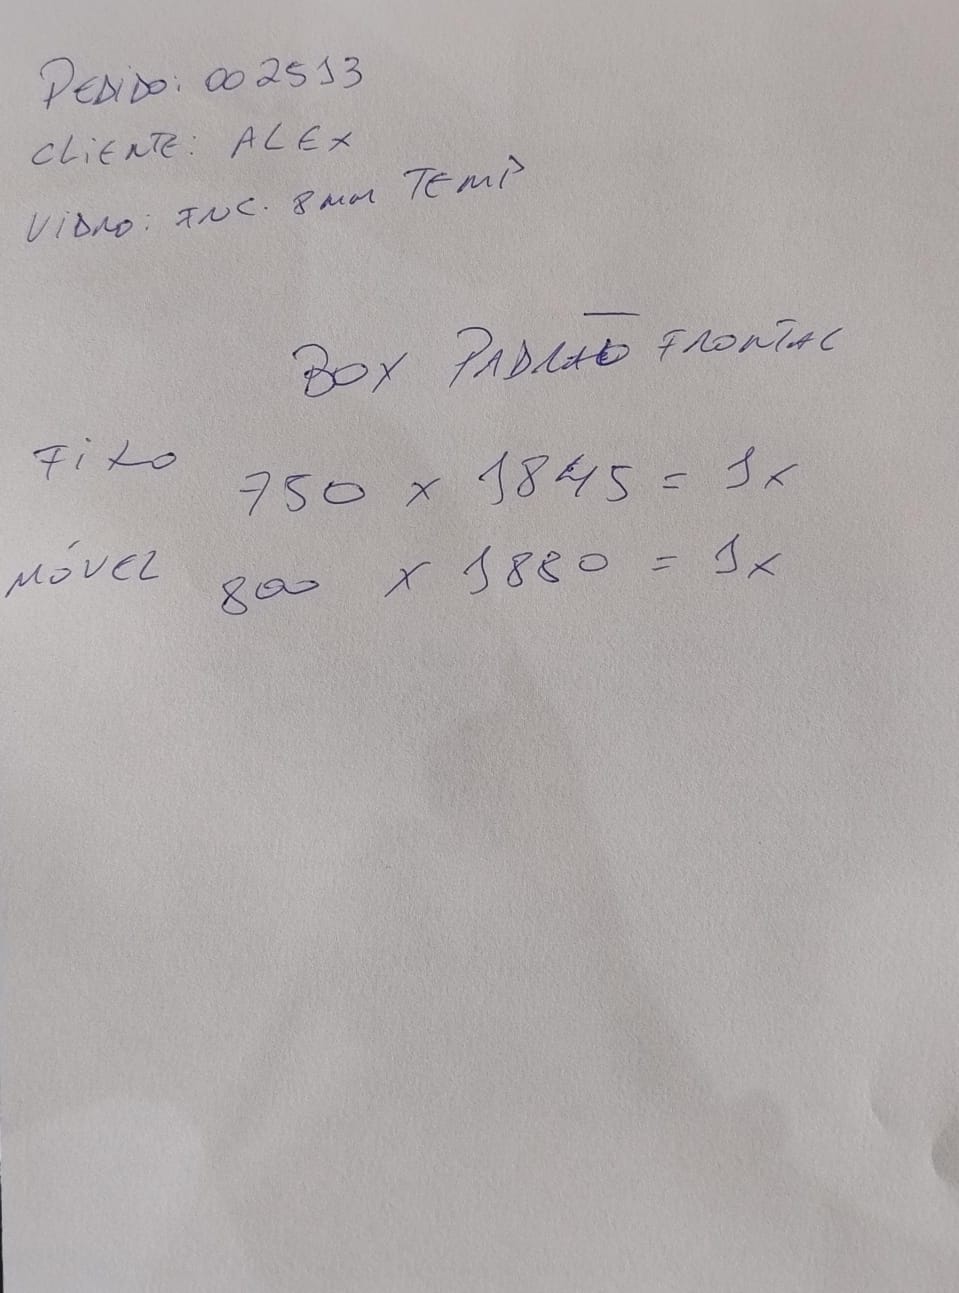 PEDIDO: 002513
CLIENTE: ALEX
VIDRO: INC. 8mm TEMP
BOX PADRÃO FRONTAL
FIXO 750 x 1845 = 1x
MÓVEL 800 x 1880 = 1x